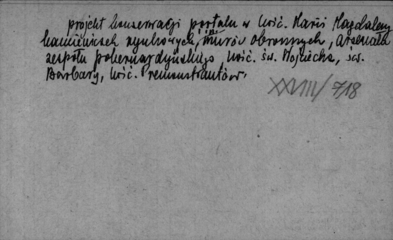 projekt konserwacji portalu w kośc. Marii Magdaleny
kamieniczek rynkowych, murów obronnych, Arsenału
zespołu pobernardyńskiego, kośc. św. Wojciecha, św.
Barbary, kośc. premonstrantów.
XXVIII/718